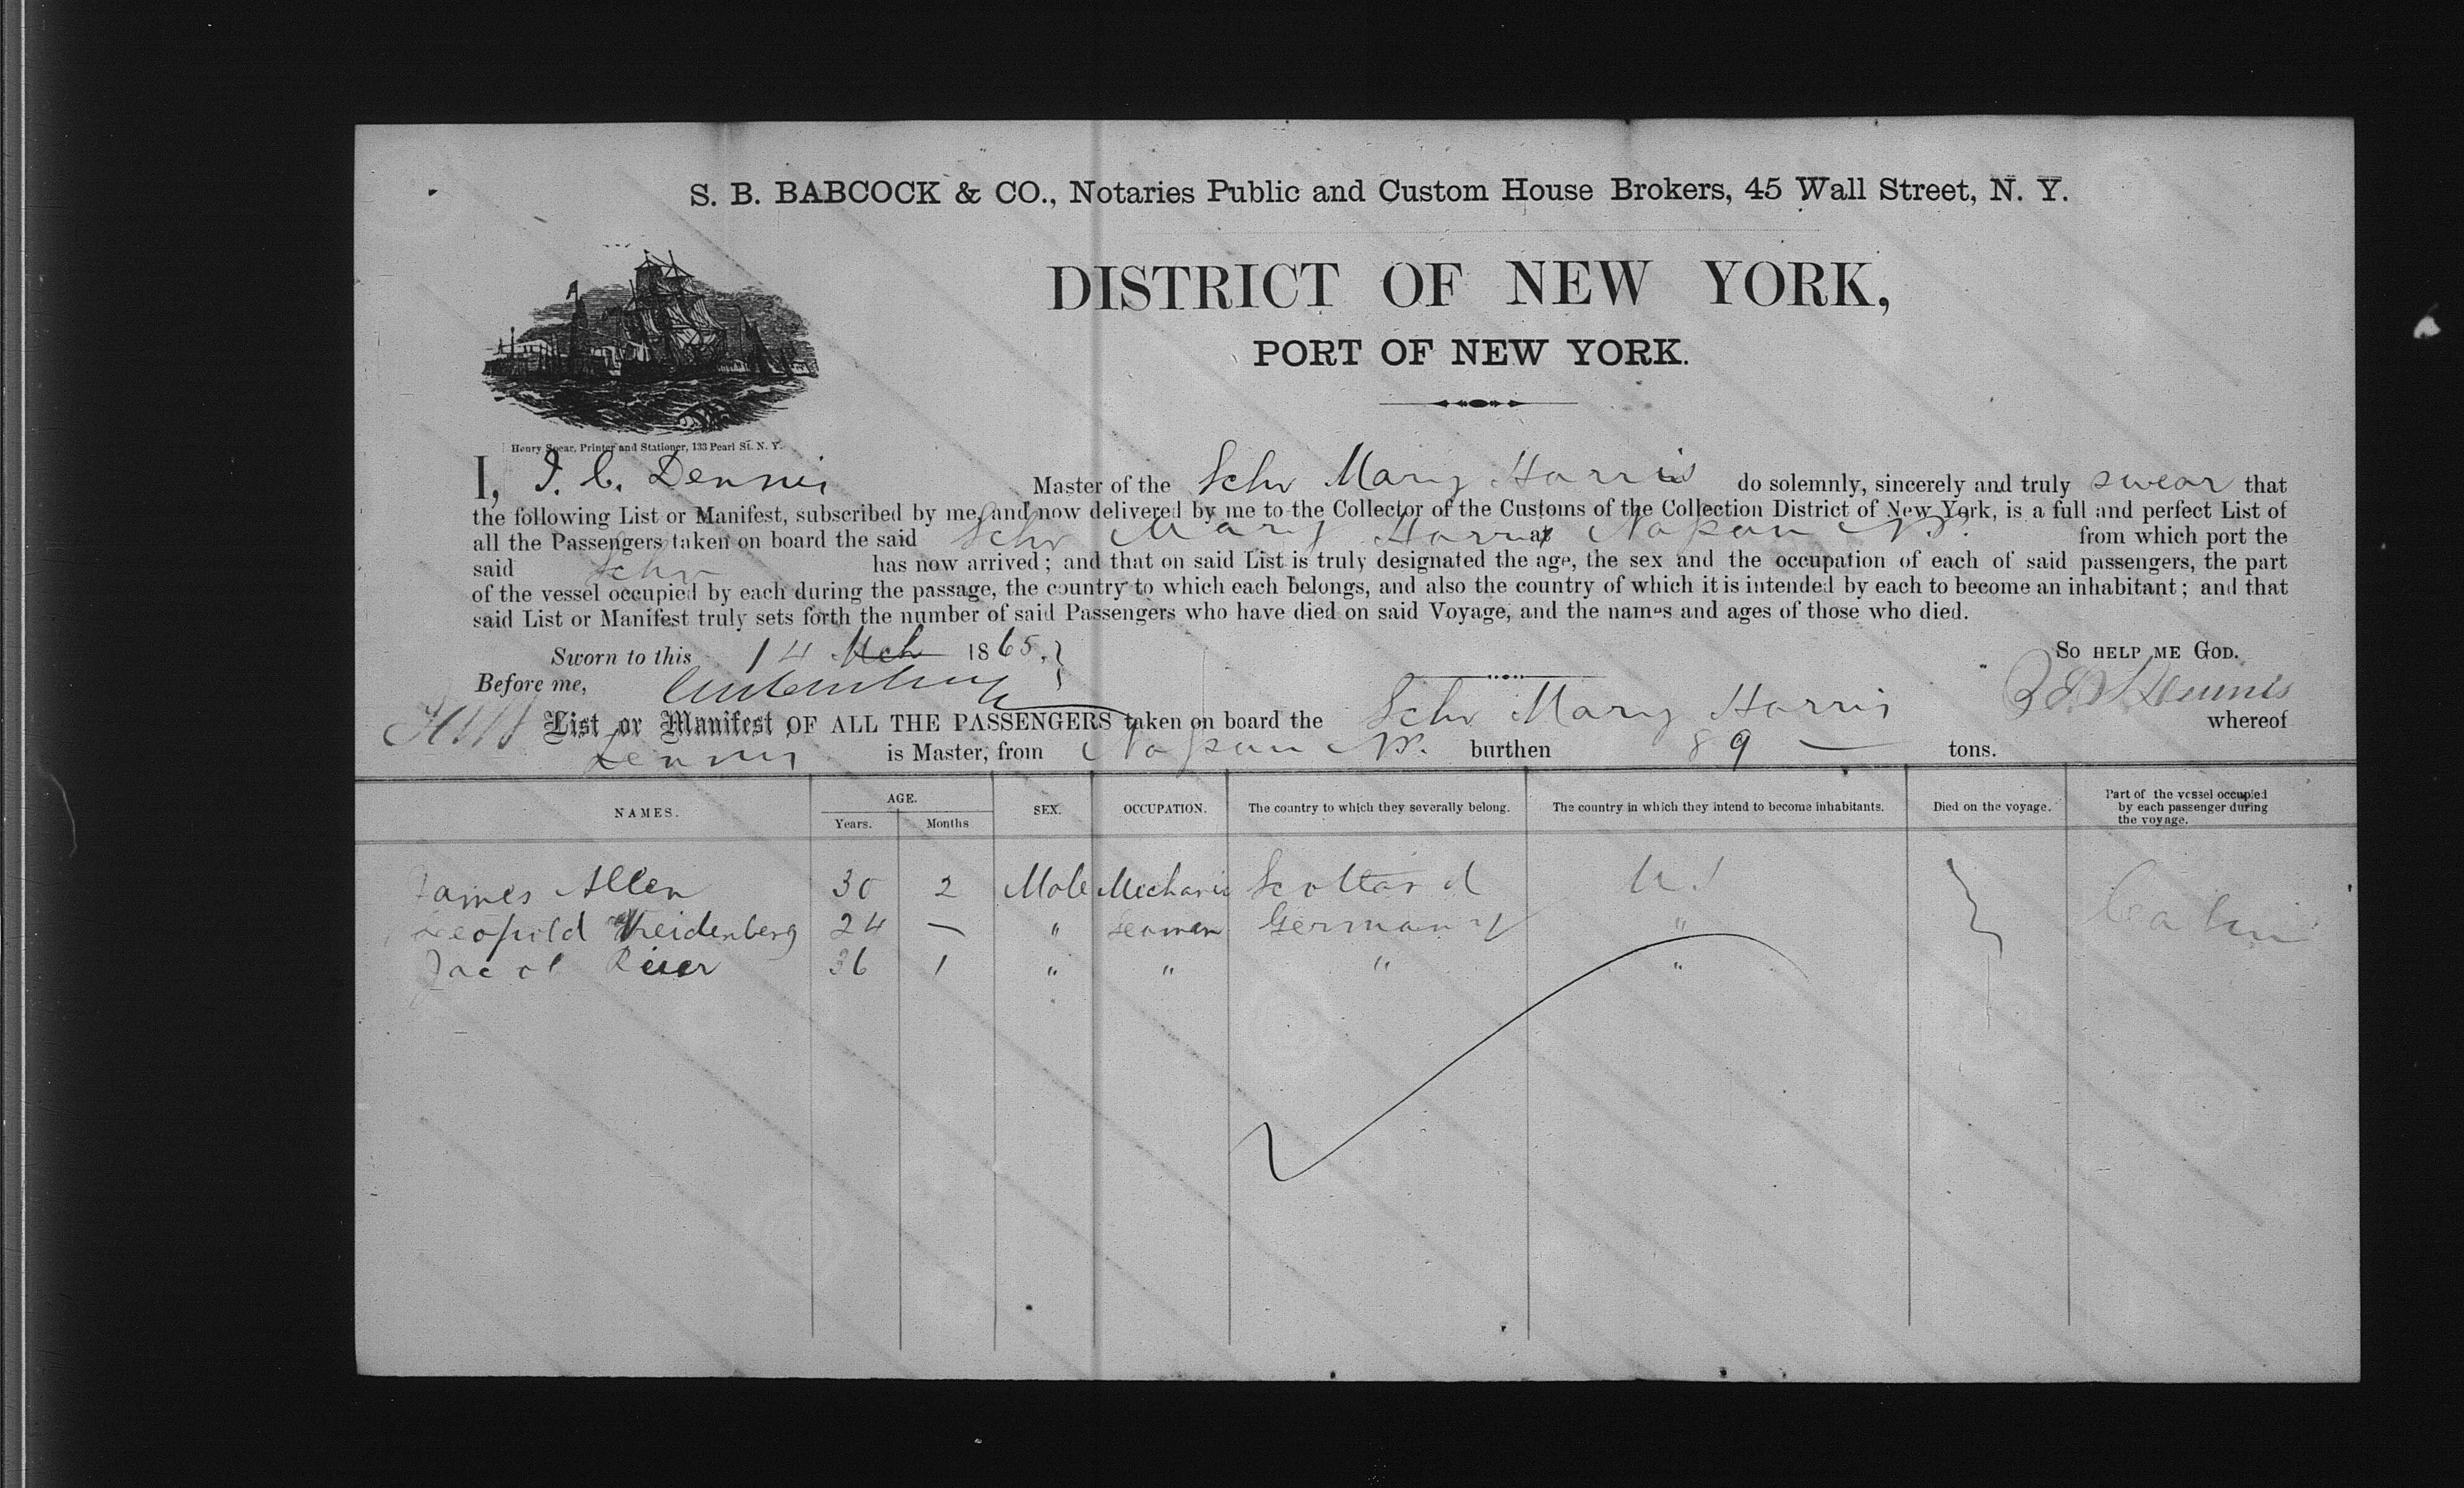 S. B. BABCOCK & CO., Notaries Public and Custom House Brokers, 45 Wall Street, N. Y.
DISTRICT OF NEW YORK,
PORT OF NEW YORK.
Henry Spear, Printer and Stationer, 133 Pearl St. N. Y.
I, J. C. Dennis Master of the Schr Mary Harris do solemnly, sincerely and truly swear that
the following List or Manifest, subscribed by me, and now delivered by me to the Collector of the Customs of the Collection District of New York, is a full and perfect List of
all the Passengers taken on board the said Schr Mary Harris at from which port the
said Schr has now arrived; and that on said List is truly designated the age, the sex and the occupation of each of said passengers, the part
of the vessel occupied by each during the passage, the country to which each belongs, and also the country of which it is intended by each to become an inhabitant; and that
said List or Manifest truly sets forth the number of said Passengers who have died on said Voyage, and the names and ages of those who died.
Sworn to this 14 Mch 1865. SO HELP ME GOD.
Before me, Dennis
List or Manifest OF ALL THE PASSENGERS taken on board the Schr Mary Harris whereof
Dennis is Master, from burthen 89 tons.
NAMES. AGE. Years. Months SEX. OCCUPATION. The country to which they severally belong. The country in which they intend to become inhabitants. Died on the voyage. Part of the vessel occupied by each passenger during the voyage.
James Allen 30 2 Male Mechanic Scotland U.S Cabin
Leopold Heidenberg 24 — " Seaman Germany "
Jacob 36 1 " " " "